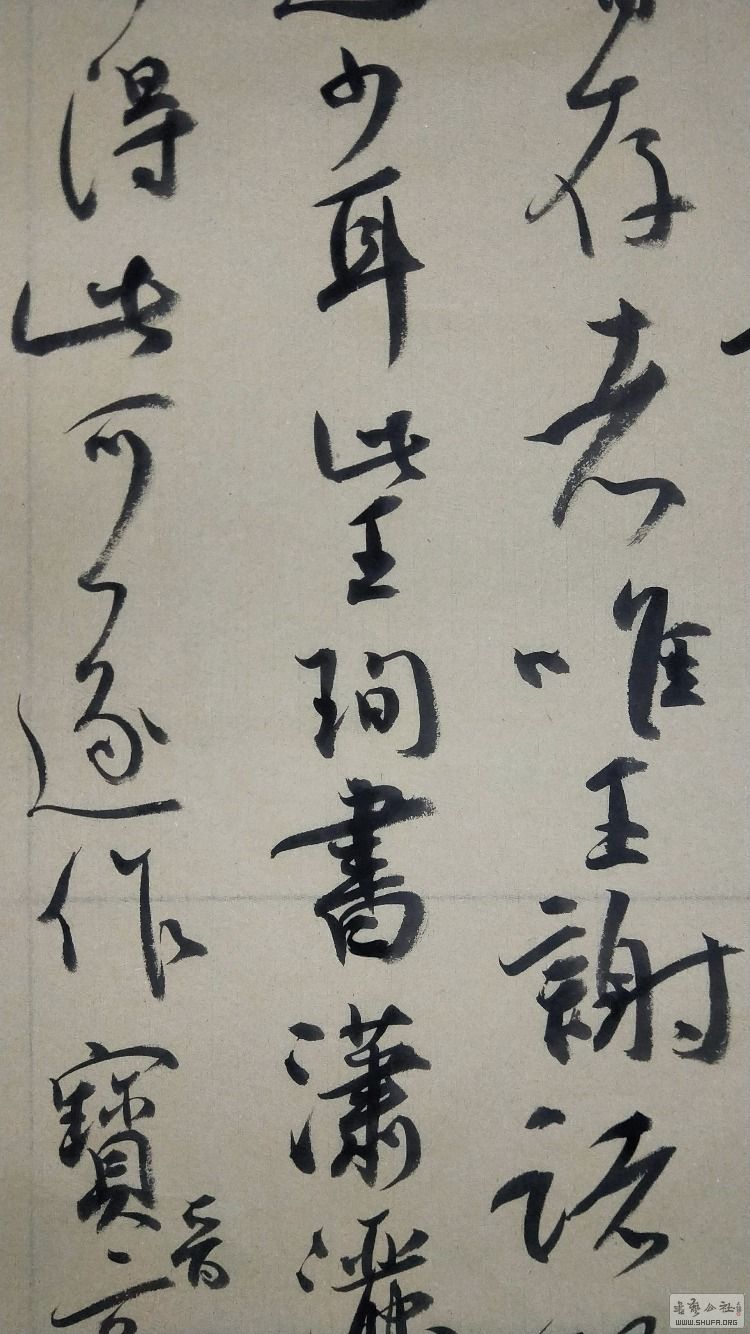 存者唯王謝諸
少耳此王珣書瀟灑
得此可遂作寶晉
書藝公社
WWW.SHUFA.ORG